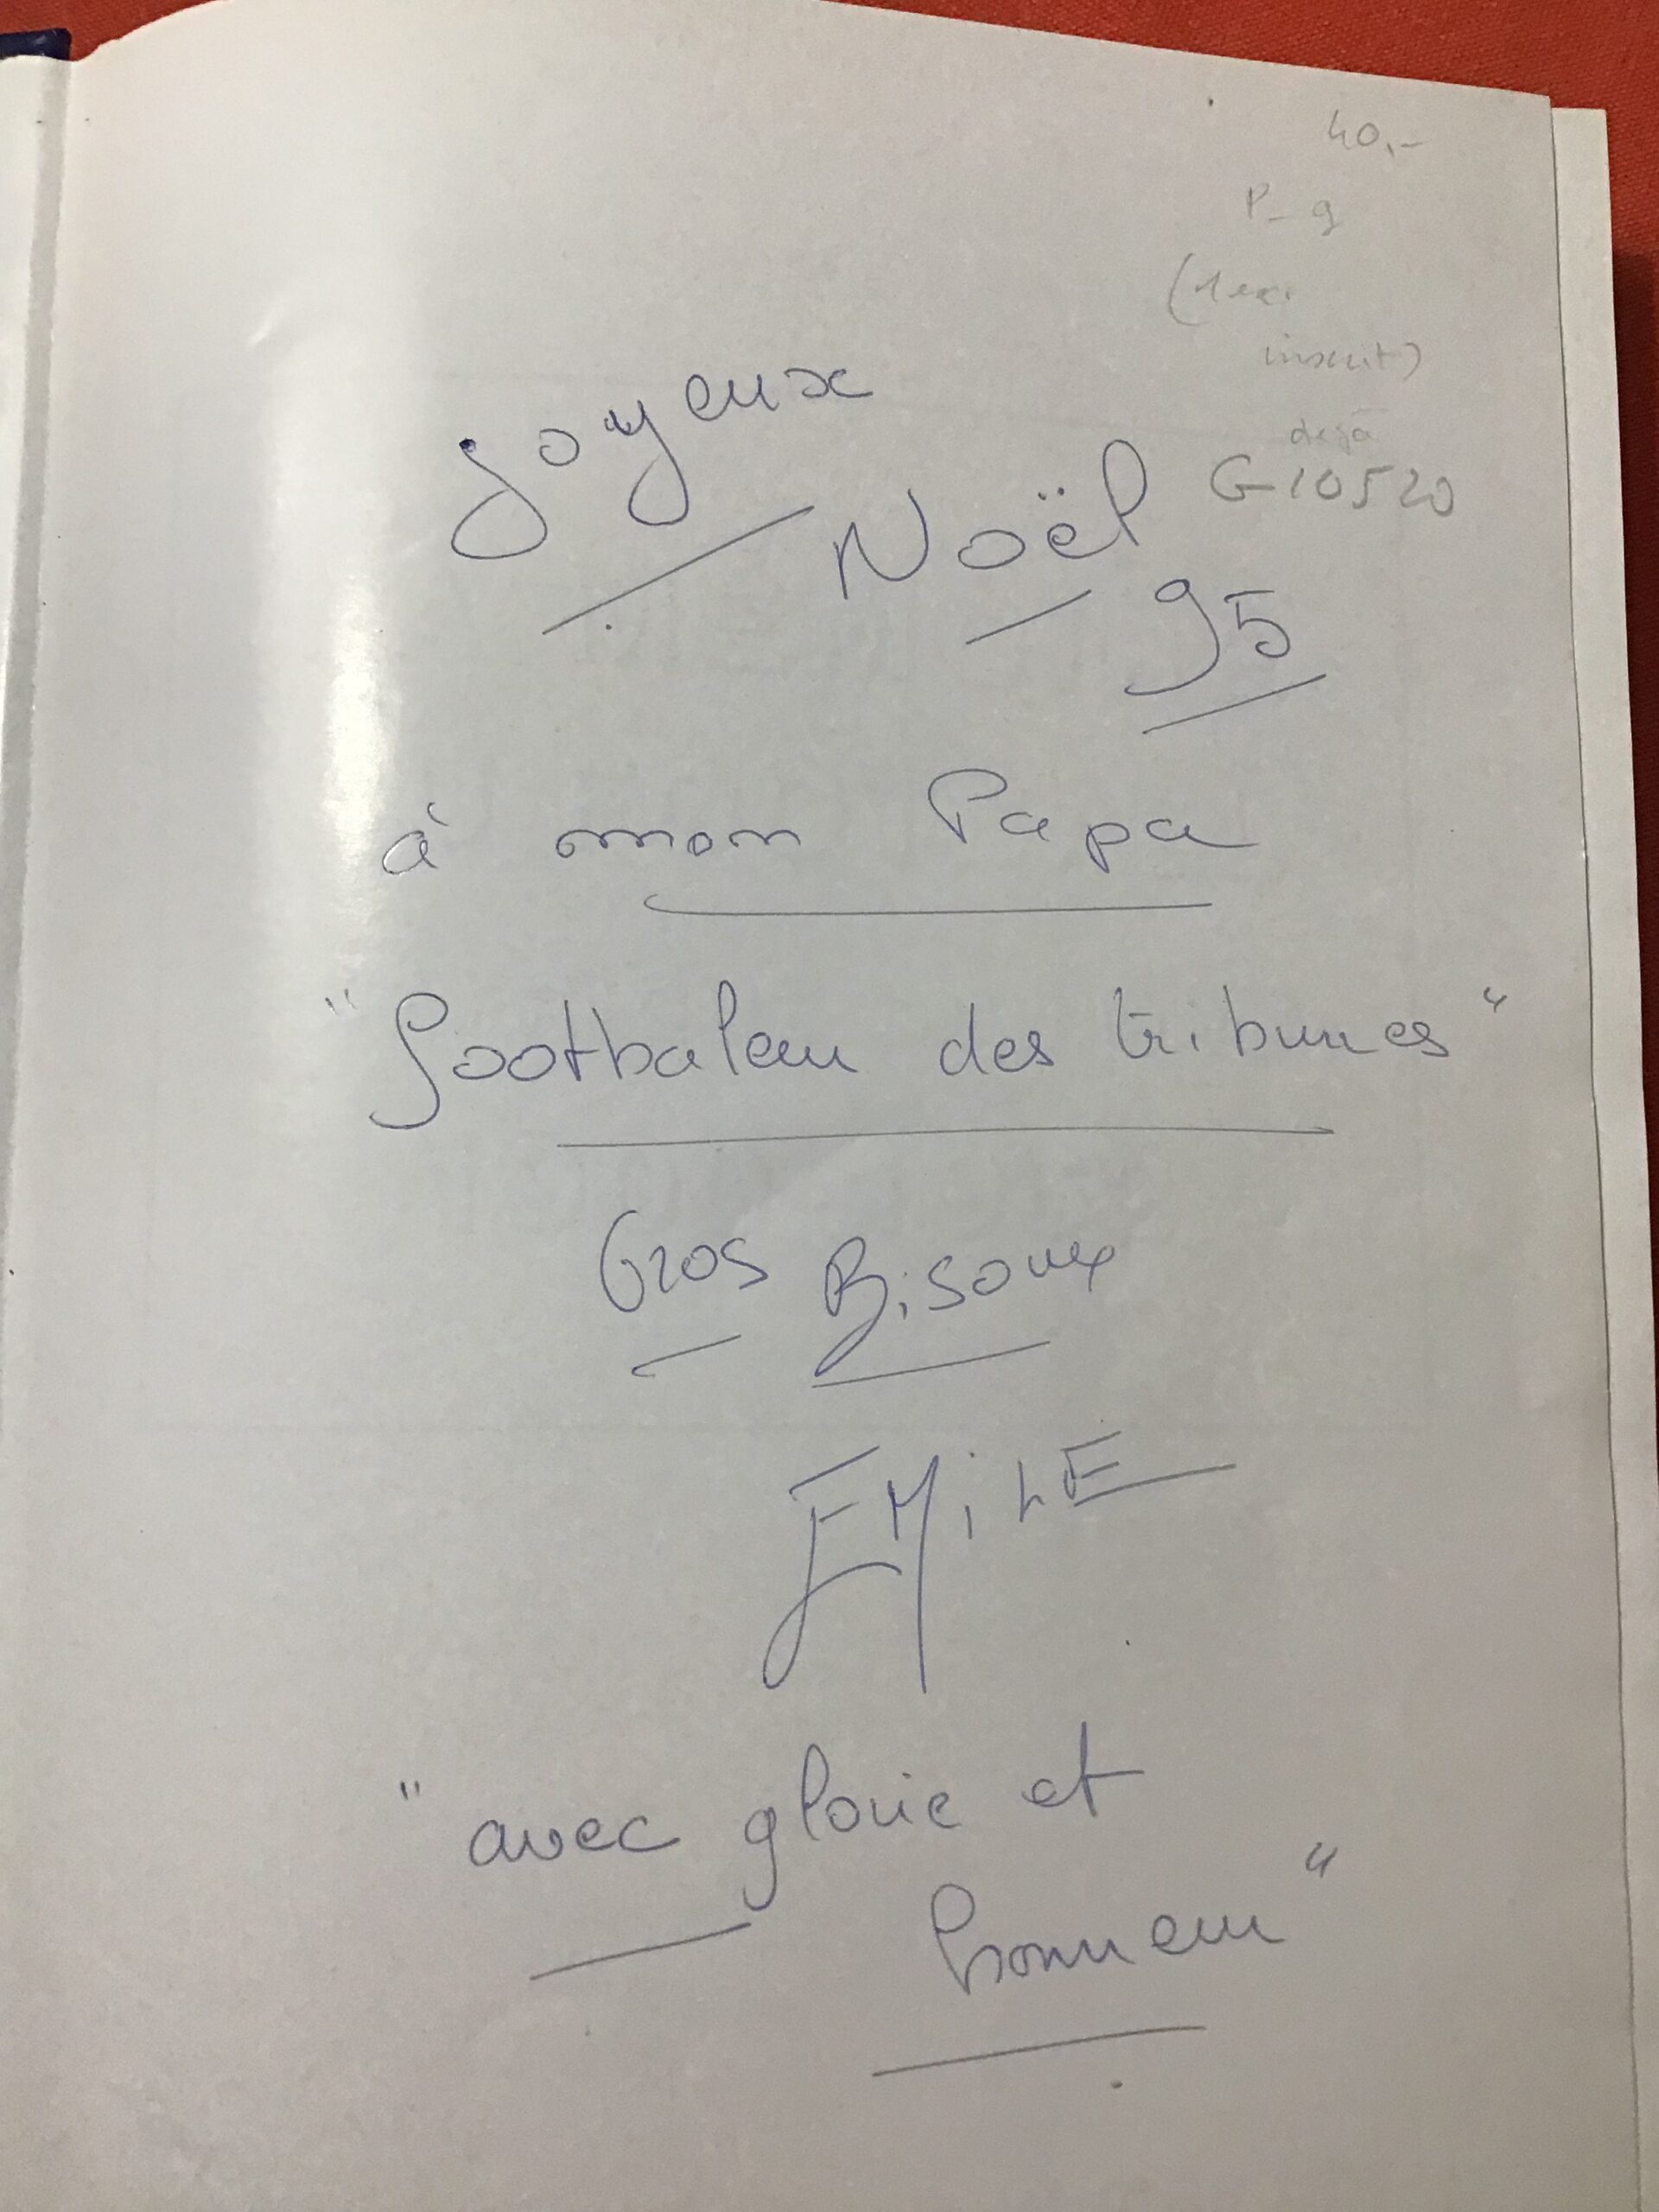 40.-
P-g
(1 ex.
inscrit)
déjà
G10520
Joyeux
Noël
95
à mon Papa
"footbaleur des tribunes"
Gros Bisoux
EMiLE
"avec gloire et
honneur"